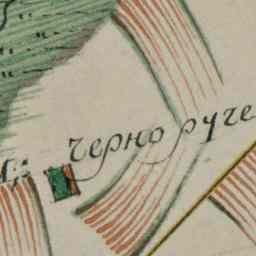 черно руче